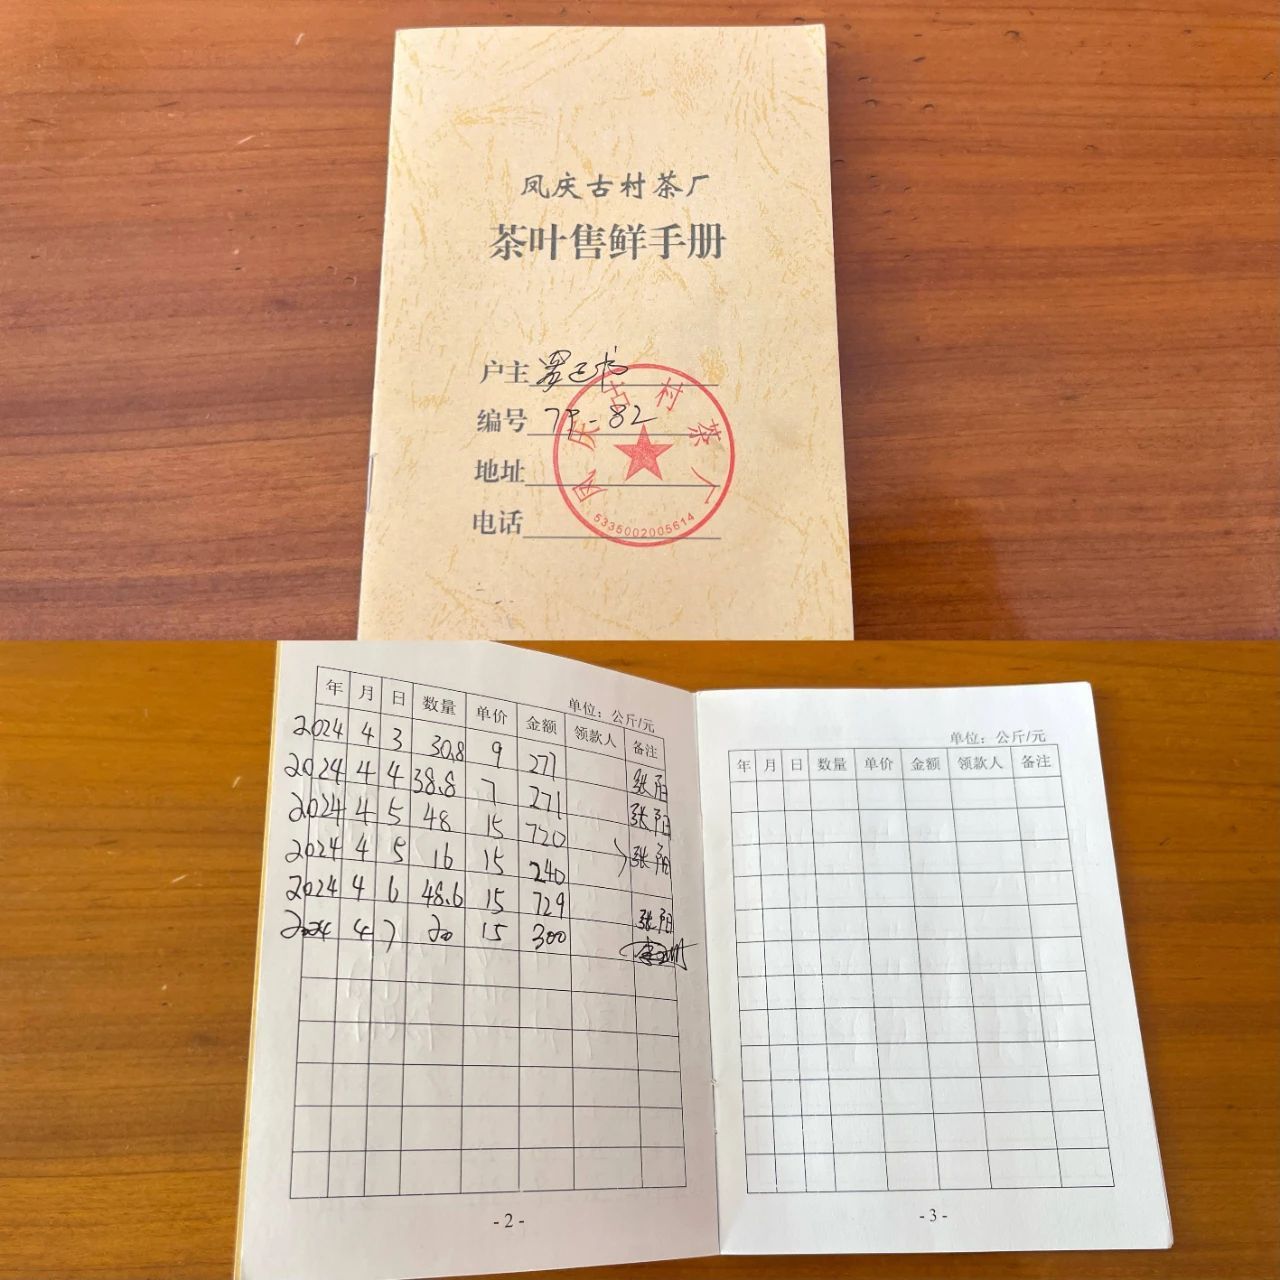 凤庆古村茶厂
茶叶售鲜手册
户主 罗正书
编号 -82
地址
电话
凤庆古村茶厂
5335002005614
单位：公斤/元
年 月 日 数量 单价 金额 领款人 备注
2024 4 3 30.8 9 277 张阳
2024 4 4 38.8 7 271 张阳
2024 4 5 48 15 720 张阳
2024 4 5 16 15 240
2024 4 6 48.6 15 729 张阳
2024 4 7 20 15 300
- 2 -
单位：公斤/元
年 月 日 数量 单价 金额 领款人 备注
- 3 -